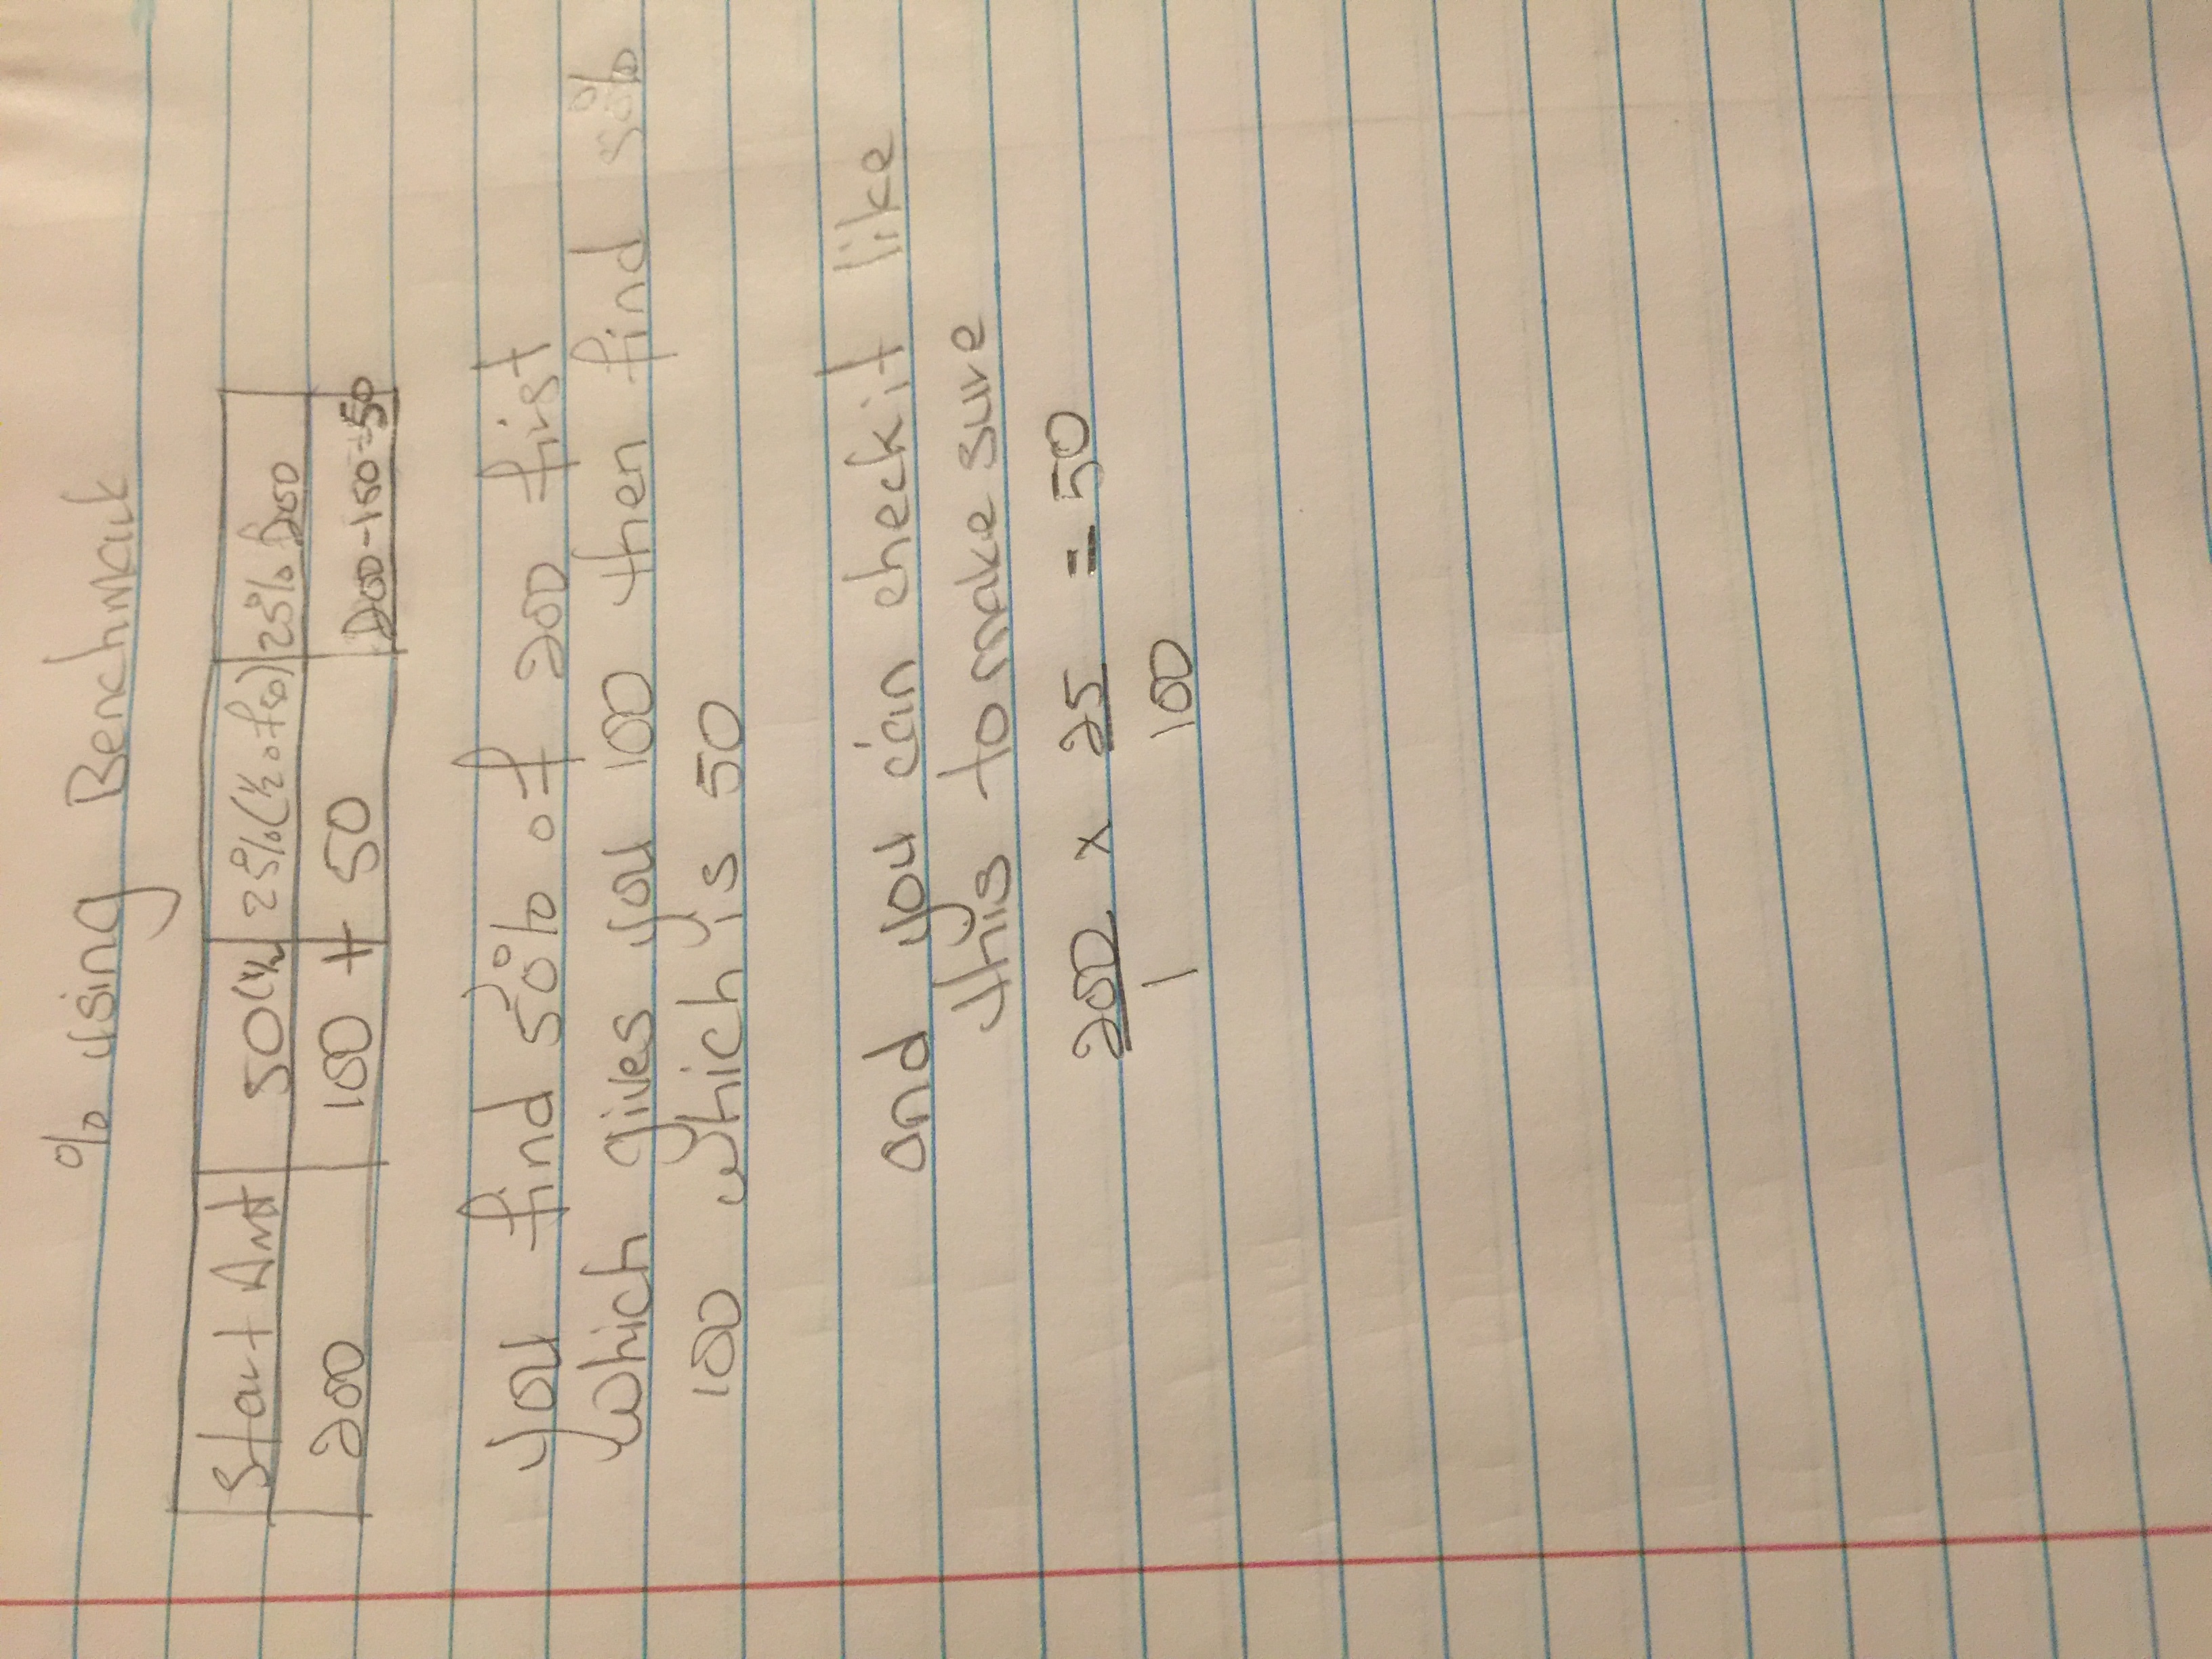 % using Benchmark
Start Amt 50(½) 25%(½ of 50) 25% of 200
200 100 + 50 200-150=50
you find 50% of 200 first
which gives you 100 then find 50%
100 which is 50
and you can check it like
this to make sure
200 x 25 = 50
1 100